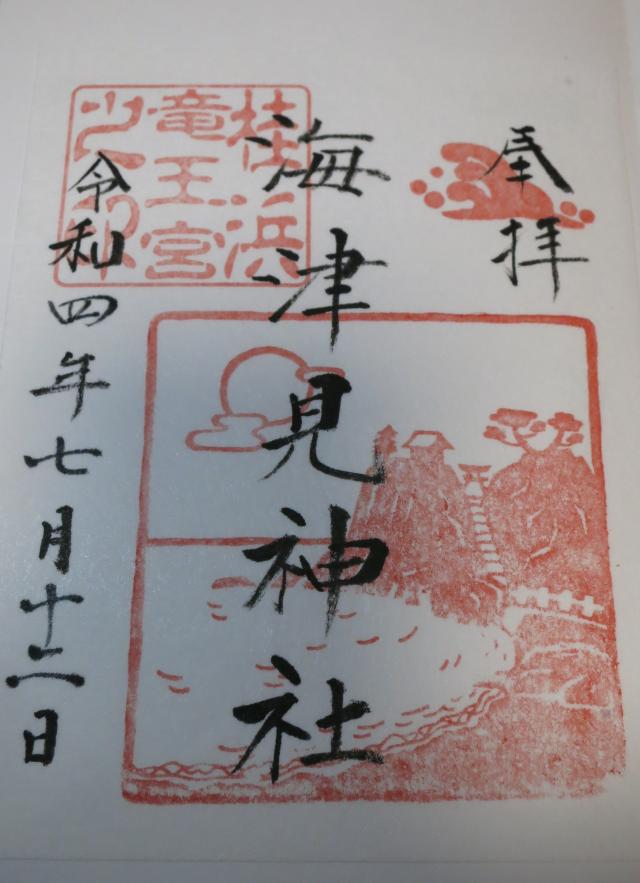 奉拝
海津見神社
桂浜
竜王宮
之印
令和四年七月十二日